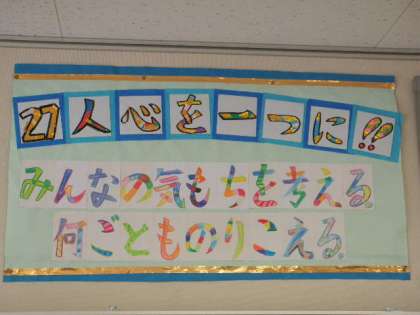 27人心を一つに!!
みんなの気もちを考える。
何ごとものりこえる。